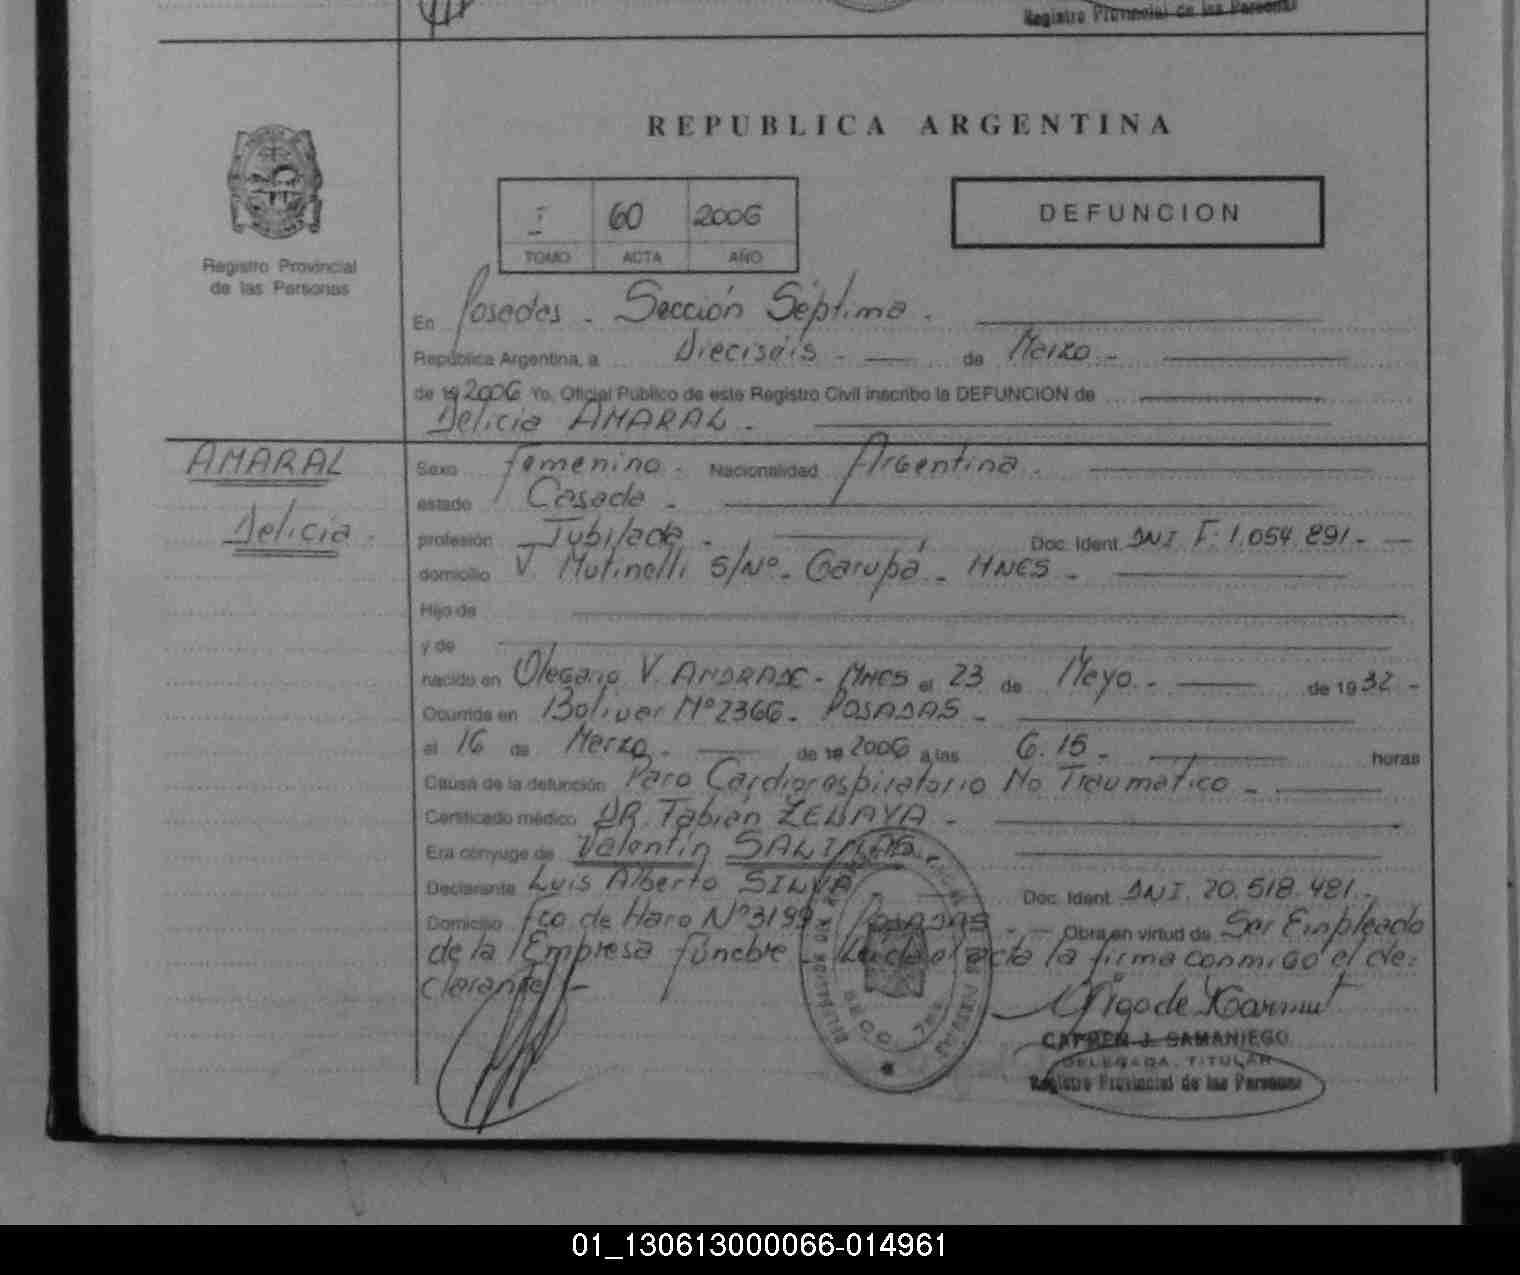 Registro Provincial de las Personas
REPUBLICA ARGENTINA
I 60 2006
TOMO ACTA AÑO
DEFUNCION
Registro Provincial
de las Personas
En Posadas - Sección Séptima -
República Argentina, a Dieciséis - de Marzo -
de 19 2006 Yo, Oficial Público de este Registro Civil inscribo la DEFUNCION de
Delicia AMARAL -
AMARAL
Delicia -
Sexo femenino - Nacionalidad Argentina -
estado Casada -
profesión Jubilada - Doc. Ident. DNI. F: 1.054.891 -
domicilio V. Mutinelli S/Nº - Garupá - MNES -
Hijo de
y de
nacido en Olegario V. ANDRADE - MNES el 23 de Mayo - de 1932 -
Ocurrida en Bolivar Nº 2366 - POSADAS -
el 16 de Marzo - de 19 2006 a las 6.15 - horas
Causa de la defunción Paro Cardiorespiratorio No Traumático -
Certificado médico DR. Fabián ZELAYA -
Era cónyuge de Valentín SALINAS
Declarante Luis Alberto SILVA - Doc. Ident. DNI. 20.518.481 -
Domicilio Fco de Haro Nº 3199 POSADAS - Obra en virtud de Ser Empleado
de la Empresa fúnebre - Leída el acta la firma conmigo el de-
clarante -
CARMEN J. SAMANIEGO
DELEGADA TITULAR
Registro Provincial de las Personas
01_130613000066-014961